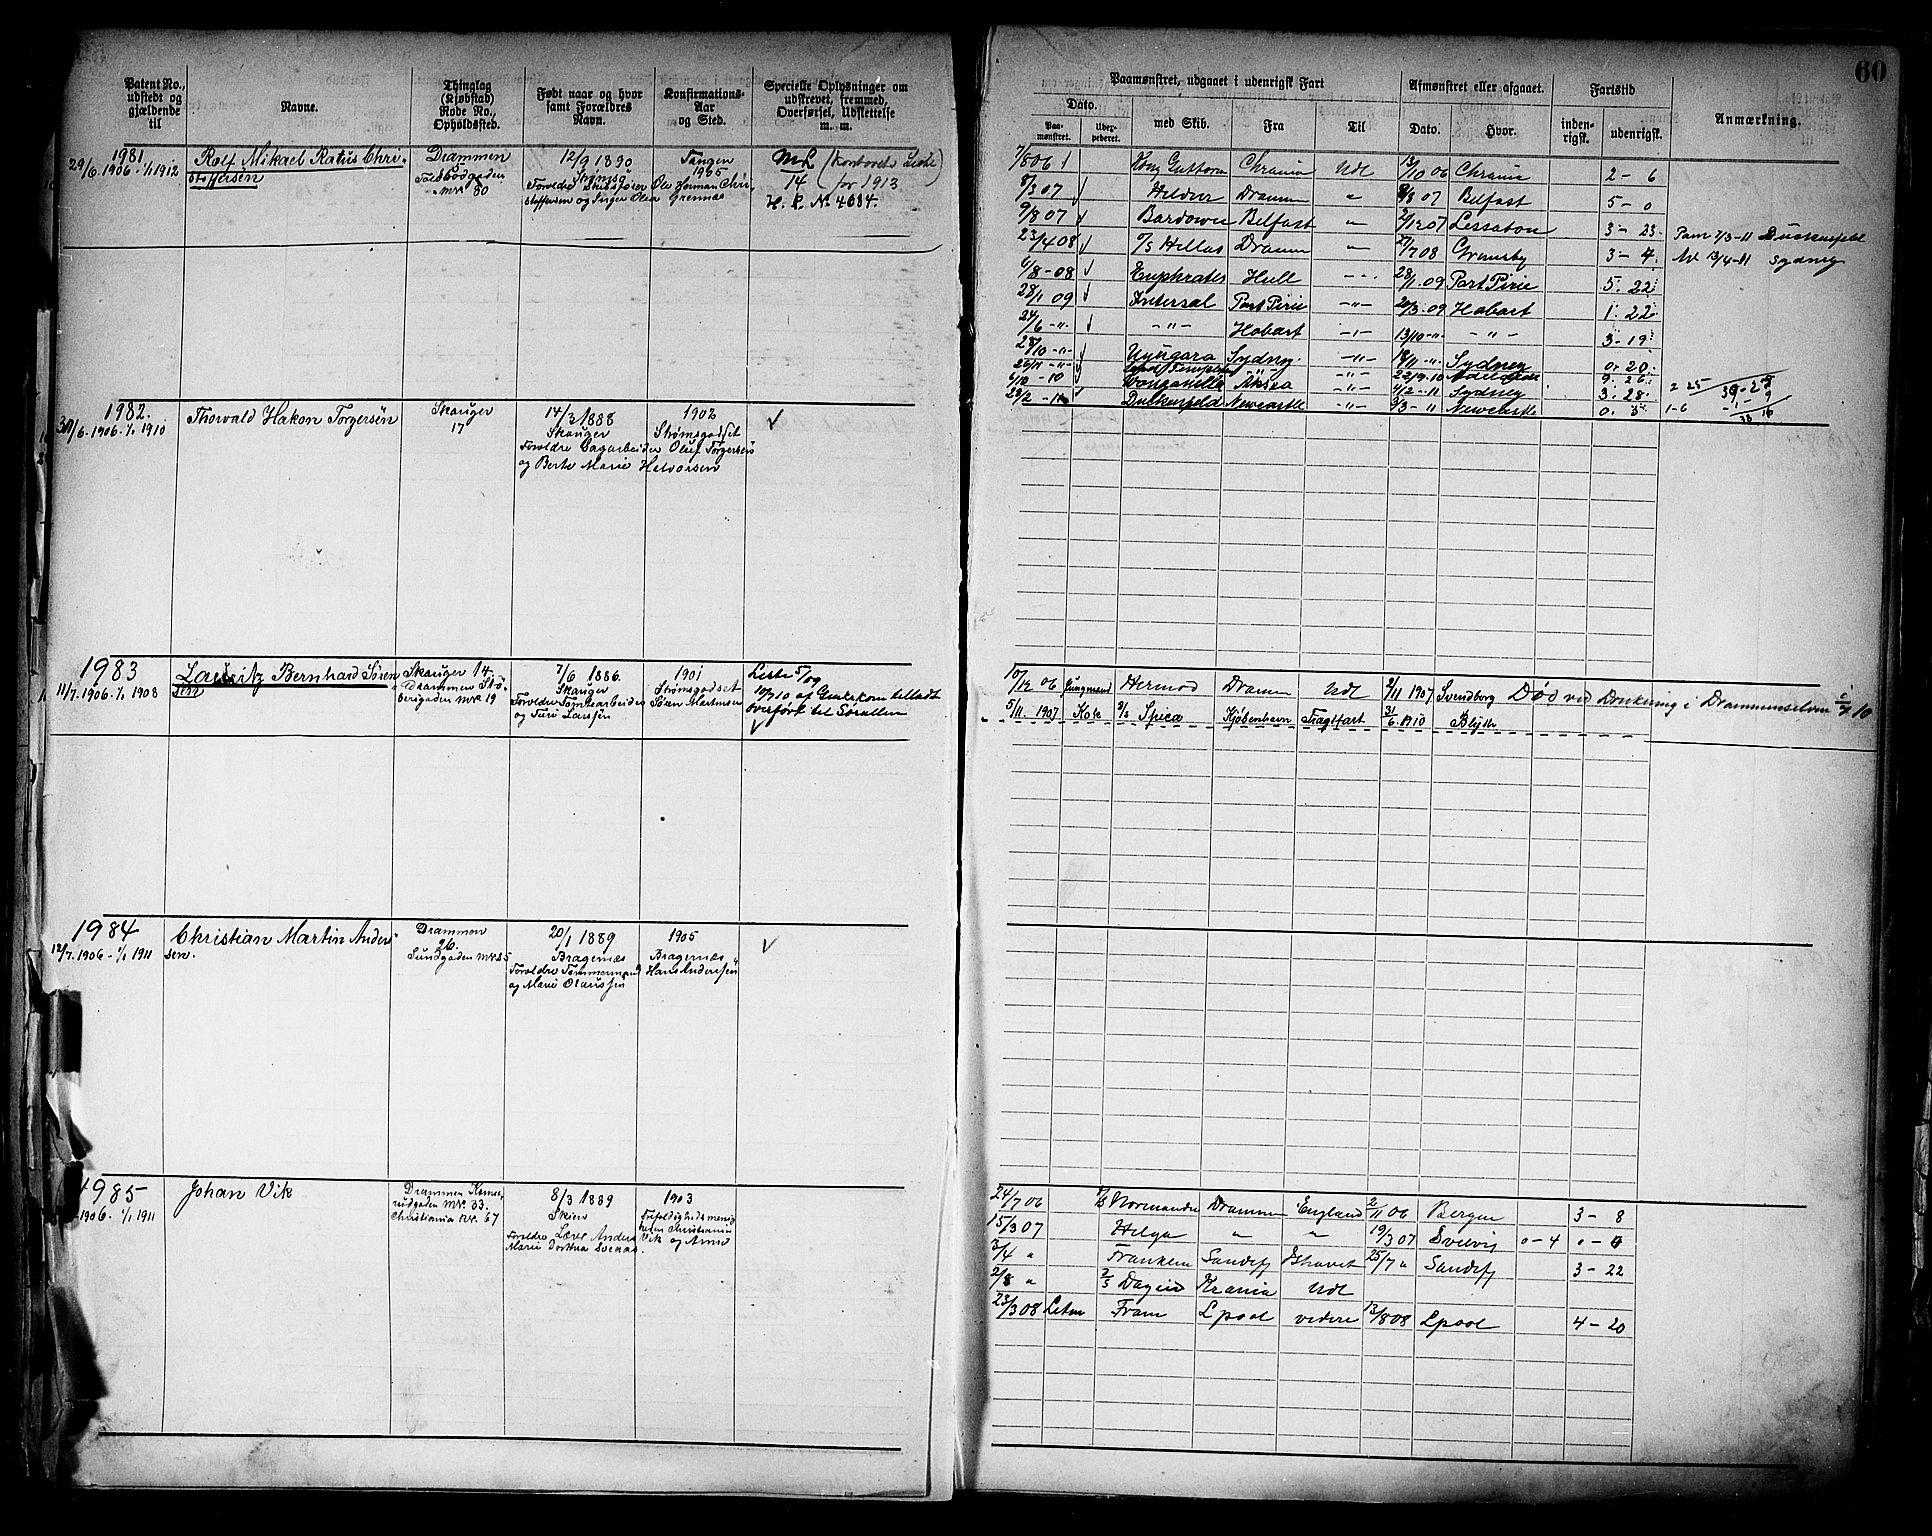 60
Patent No., udstedt og gjældende til
Navne.
Thinglag (Kjøbstad) Rode No., Opholdssted.
Født naar og hvor samt Forældres Navn.
Konfirmations-Aar og Sted.
Specielle Oplysninger om udskrevet, fremmed, Overførsel, Udslettelse m. m.
Paamønstret, udgaaet i udenrigsk Fart
Afmønstret eller afgaaet.
Fartstid
Anmærkning.
Dato.
Paamønstret.
med Skib.
Fra
Til
Dato.
Hvor.
indenrigsk.
udenrigsk.
1981
29/6.1906-1/1 1912
Rolf Mikael Ratius Christoffersen
Drammen
5
nr 80
12/9 1890
Strømsø
Forældre Skibsfører Ole Herman Christoffersen og Inger Olea Grennes
Tangen
1905
ML
14
(Kontorets Liste for 1913)
H. P. No 4684.
7/8 06 Kong Guttorm Chrania Udl 13/10 06 Chrania 2-6
8/3 07 Hildur Drammen " 8/8 07 Belfast 5-0
9/8 07 Bardowie Belfast " 2/12 07 3-23
23/4 08 Hellas Dramm " 27/7 08 Grimsby 3-4
6/8-08 Euphrates Hull -"- 28/1.09 Port Pirie 5.22
28/1 09 Port Pirie -"- 20/3.09 Hobart 1.22
24/6 -"- -"- Hobart -"- 13/10 -"- -"- 3-19
28/10 -"- Sydney -"- 18/11 -"- Sydney 0.20
26/11 -"- -"- -"- 22/9.10 9.26
6/10-10 -"- 4/2-11 Sydney 3.28
28/2-11 Duckenfield Newcastle -"- 3/3-11 Newcastle 0.5
Paam 7/3-11 Duckenfeld
Af 13/4-11 Sydney
2 25
1-6
1982.
30/6.1906-1/1 1910
Thorvald Hakon Torgersen
Skouger
17
14/3 1888
Skouger
Forældre Dagarbeider Oluf Torgersen og Berte Marie Halvorsen
1902
Strømsgodset
1983
11/7.1906-1/1 1908
Lauritz Bernhard Sørensen
Skouger 14.
Drammen
nr 19
7/6 1886.
Skouger
Forældre Tomtearbeider Søren Martinsen og Turi Larssen
1901
Strømsgodset
Liste 5/09
10/9 10 af Gensekom tilladt overført til Sørullen
10/12 06 Jungmand Hermod Dramen Udl 2/11 1907 Svendborg
5/11 1907 Kok Spica Kjøbenhavn Fragtfart 31/6.1910 Blyth
Død ved Drukning i Drammenselven 10
1984
12/7.1906-1/1 1911
Christian Martin Andersen.
Drammen
26.
Sundgaden nr 25
20/1 1889
Bragernæs
Forældre Tømmermand Hans Anderssen og Marie Olaussen
1905
Bragernæs
1985
1906-1/1 1911
Johan Vik
Drammen
nr. 33.
Christiania nr. 67
8/3 1889
Skien
Forældre Anders Vik og Anne Marie Dorthea
1903
Christiania
24/7 06 Normandie Drammen England 2/11 06 Bergen 3-8
15/3 07 Helga " " 19/3 07 Svelvig 0-4 0-0
3/4 " Franklin Sandefj Ishavet 25/7 " Sandefj 3-22
2/8 " Krania Udl
23/3 08 Letm Fram Lpool videre 13/8 08 Lpool 4-20